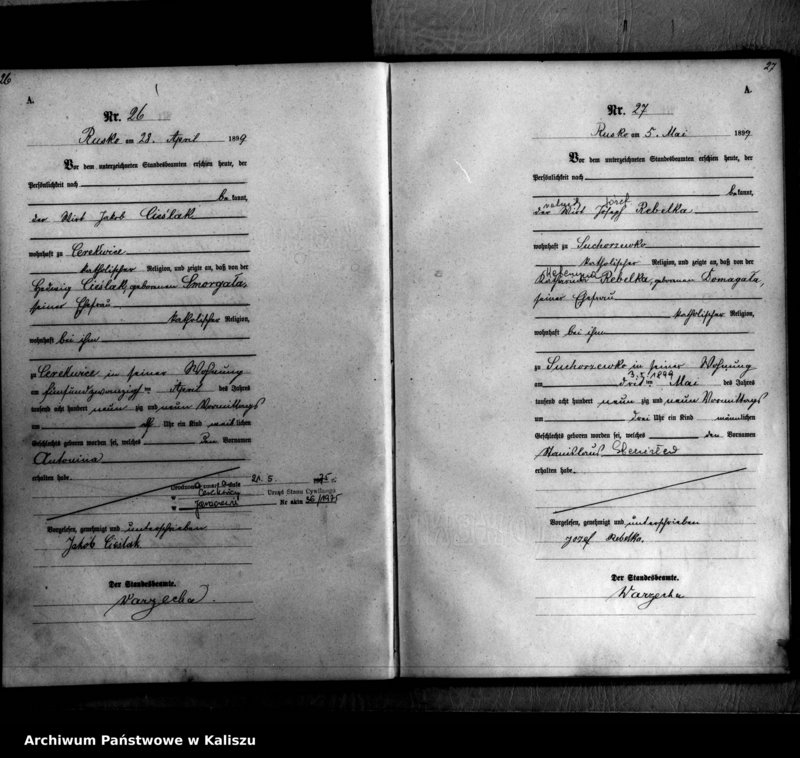 26
A.
Nr. 26
Rusko am 28. April 1899
Vor dem unterzeichneten Standesbeamten erschien heute, der
Persönlichkeit nach
bekannt,
der Wirt Jakob Cieślak
wohnhaft zu Cerekwice
katholischer Religion, und zeigte an, daß von der
Hedwig Cieślak, geborenen Smorgała,
seiner Ehefrau
katholischer Religion,
wohnhaft bei ihm
zu Cerekwice in seiner Wohnung
am fünfundzwanzigsten April des Jahres
tausend acht hundert neunzig und neun Vormittags
um elf Uhr ein Kind weiblichen
Geschlechts geboren worden sei, welches den Vornamen
Antonina
erhalten habe.
21. 5. 75 r.
Urząd Stanu Cywilnego
Nr aktu 36/1975
Vorgelesen, genehmigt und unterschrieben
Jakob Cieślak
Der Standesbeamte.
Warzecha
27
A.
Nr. 27
Rusko am 5. Mai 1899
Vor dem unterzeichneten Standesbeamten erschien heute, der
Persönlichkeit nach
bekannt,
rolnik Józef
der Wirt Joseph Rebelka
wohnhaft zu Suchorzewko
katholischer Religion, und zeigte an, daß von der
Katarzyna
Rebelka, geborenen Domagała,
seiner Ehefrau
katholischer Religion,
wohnhaft bei ihm
zu Suchorzewko in seiner Wohnung
3. 5. 1899
am dritten Mai des Jahres
tausend acht hundert neunzig und neun Vormittags
um drei Uhr ein Kind männlichen
Geschlechts geboren worden sei, welches den Vornamen
Stanislaus
erhalten habe.
Vorgelesen, genehmigt und unterschrieben
Jozef Rebelka.
Der Standesbeamte.
Warzecha
Archiwum Państwowe w Kaliszu